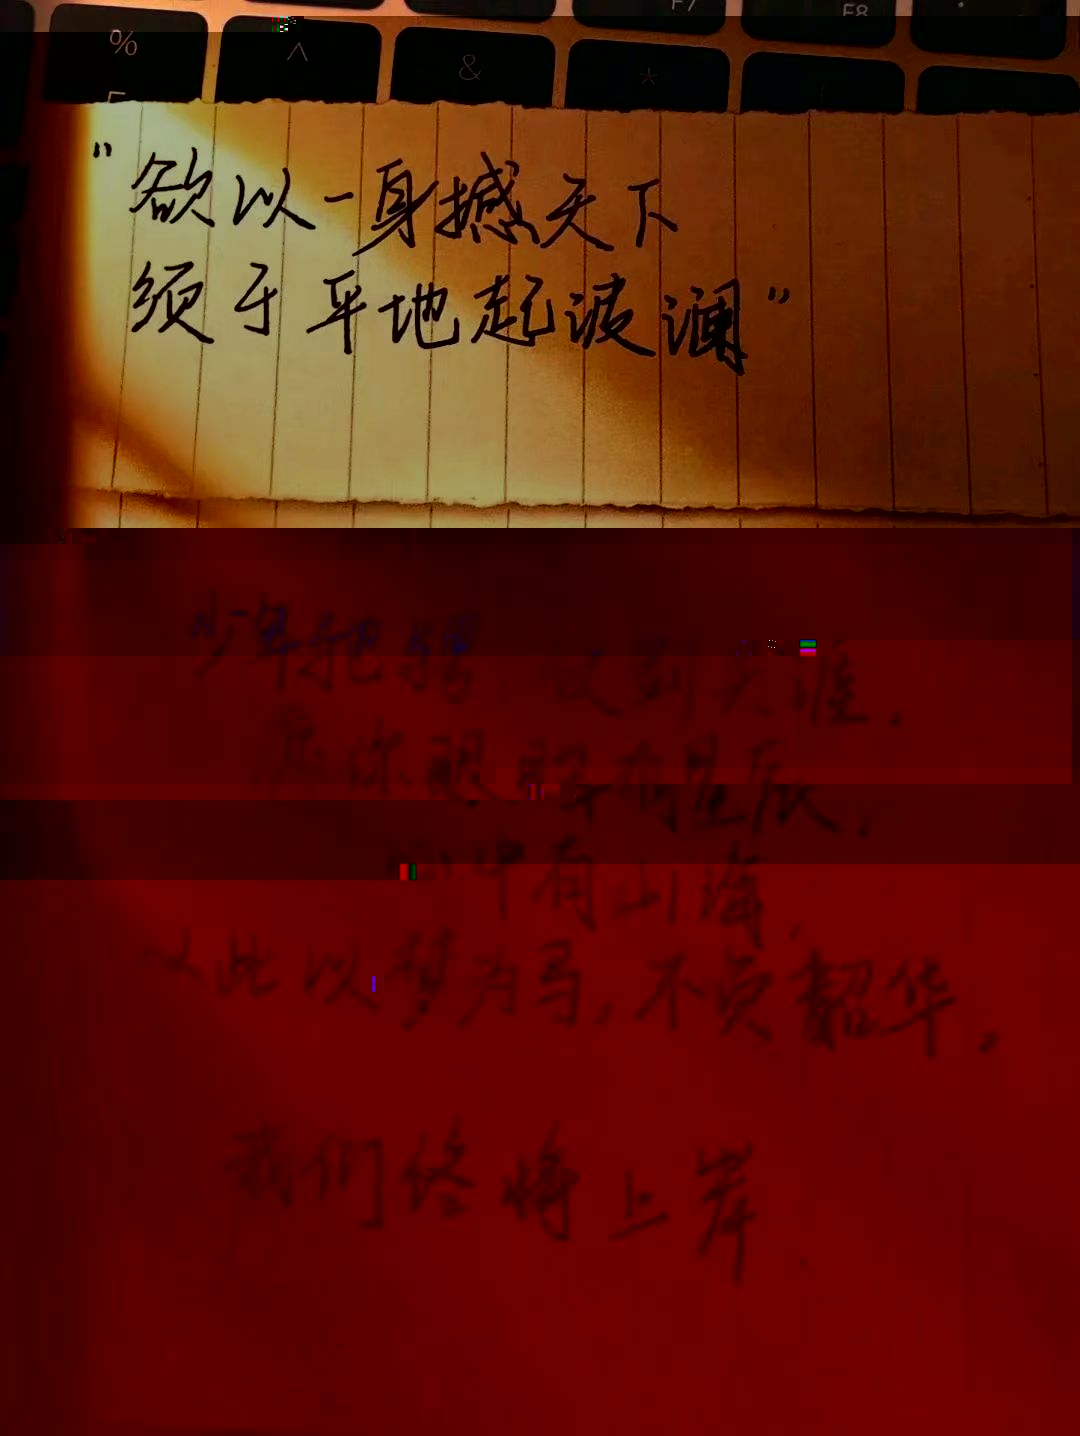 F7 F8
% ^ & *
"欲以一身撼天下
须于平地起波澜"
少年 到天涯,
愿你眼眸有星辰,
心中有山海,
从此以梦为马,不负韶华。
我们终将上岸